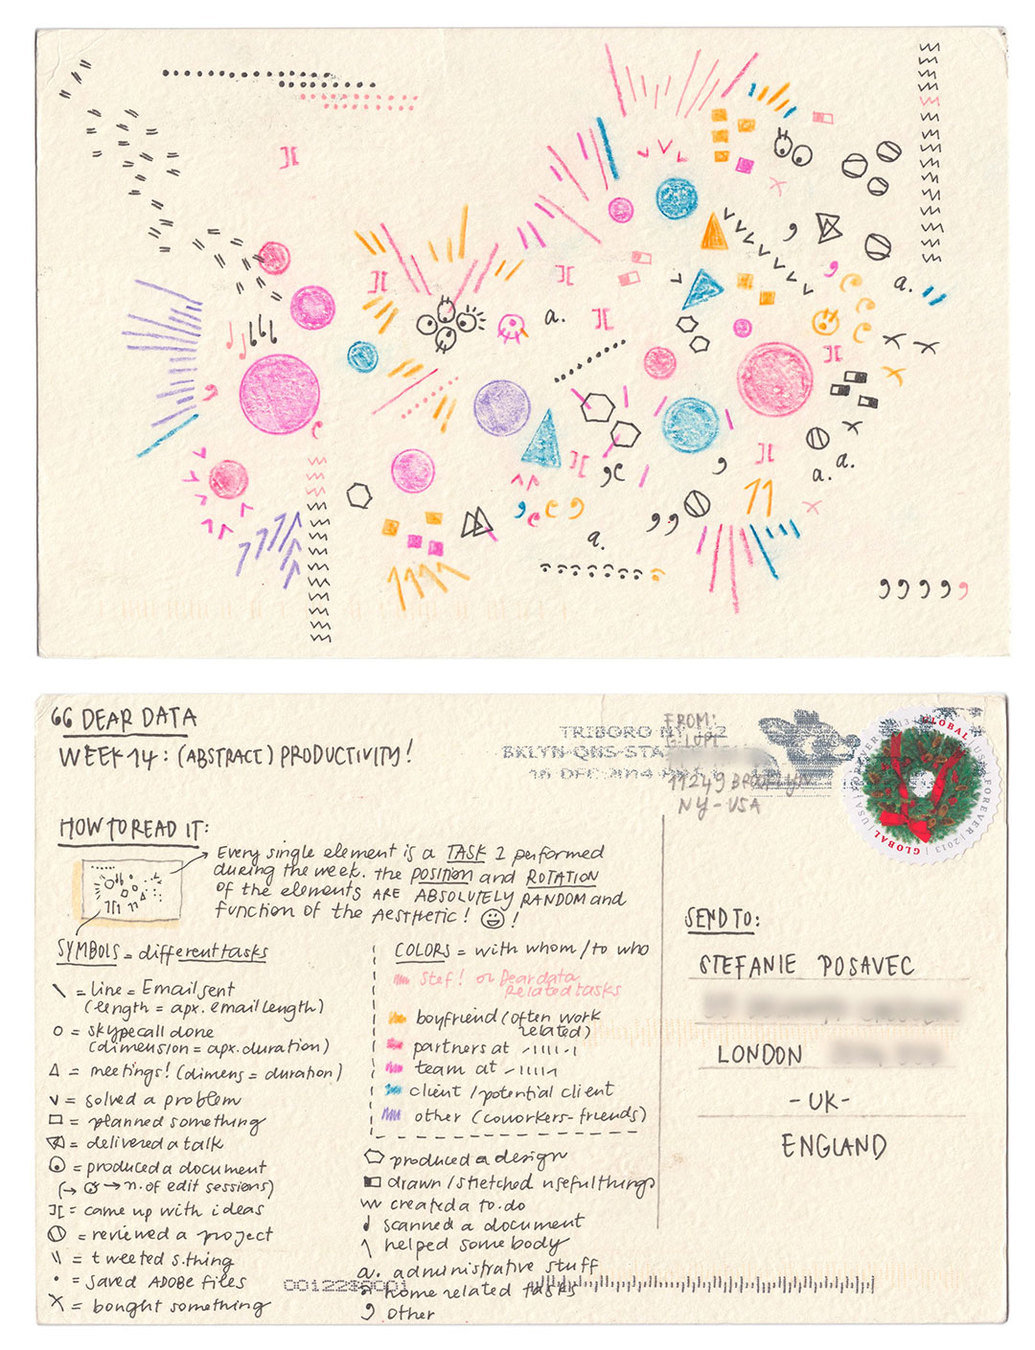 a.
a.
a.
a.
a.
66 DEAR DATA
WEEK 14: (ABSTRACT) PRODUCTIVITY!
TRIBORO NY 112
BKLYN-QNS-STA
16 DEC 2014
FROM:
G. LUPI
11249 BROOKLYN
NY - USA
GLOBAL
FOREVER
USA
2013
GLOBAL
HOW TO READ IT:
Every single element is a TASK I performed
during the week. the POSITION and ROTATION
of the elements ARE ABSOLUTELY RANDOM and
function of the AESTHETIC! !
SYMBOLS = different tasks
\ = line = Email sent
(length = apx. email length)
O = skype call done
(dimension = apx. duration)
Δ = meetings! (dimens = duration)
v = solved a problem
□ = planned something
= delivered a talk
= produced a document
(→ → n. of edit sessions)
][ = came up with ideas
= reviewed a project
\\ = tweeted s.thing
• = saved ADOBE files
X = bought something
COLORS = with whom / to who
Stef! or Dear data
related tasks
boyfriend (often work
related)
partners at
team at
client / potential client
other (coworkers - friends)
produced a design
drawn / sketched useful things
created a to.do
scanned a document
helped somebody
a. administrative stuff
home related tasks
, other
SEND TO:
STEFANIE POSAVEC
LONDON
- UK -
ENGLAND